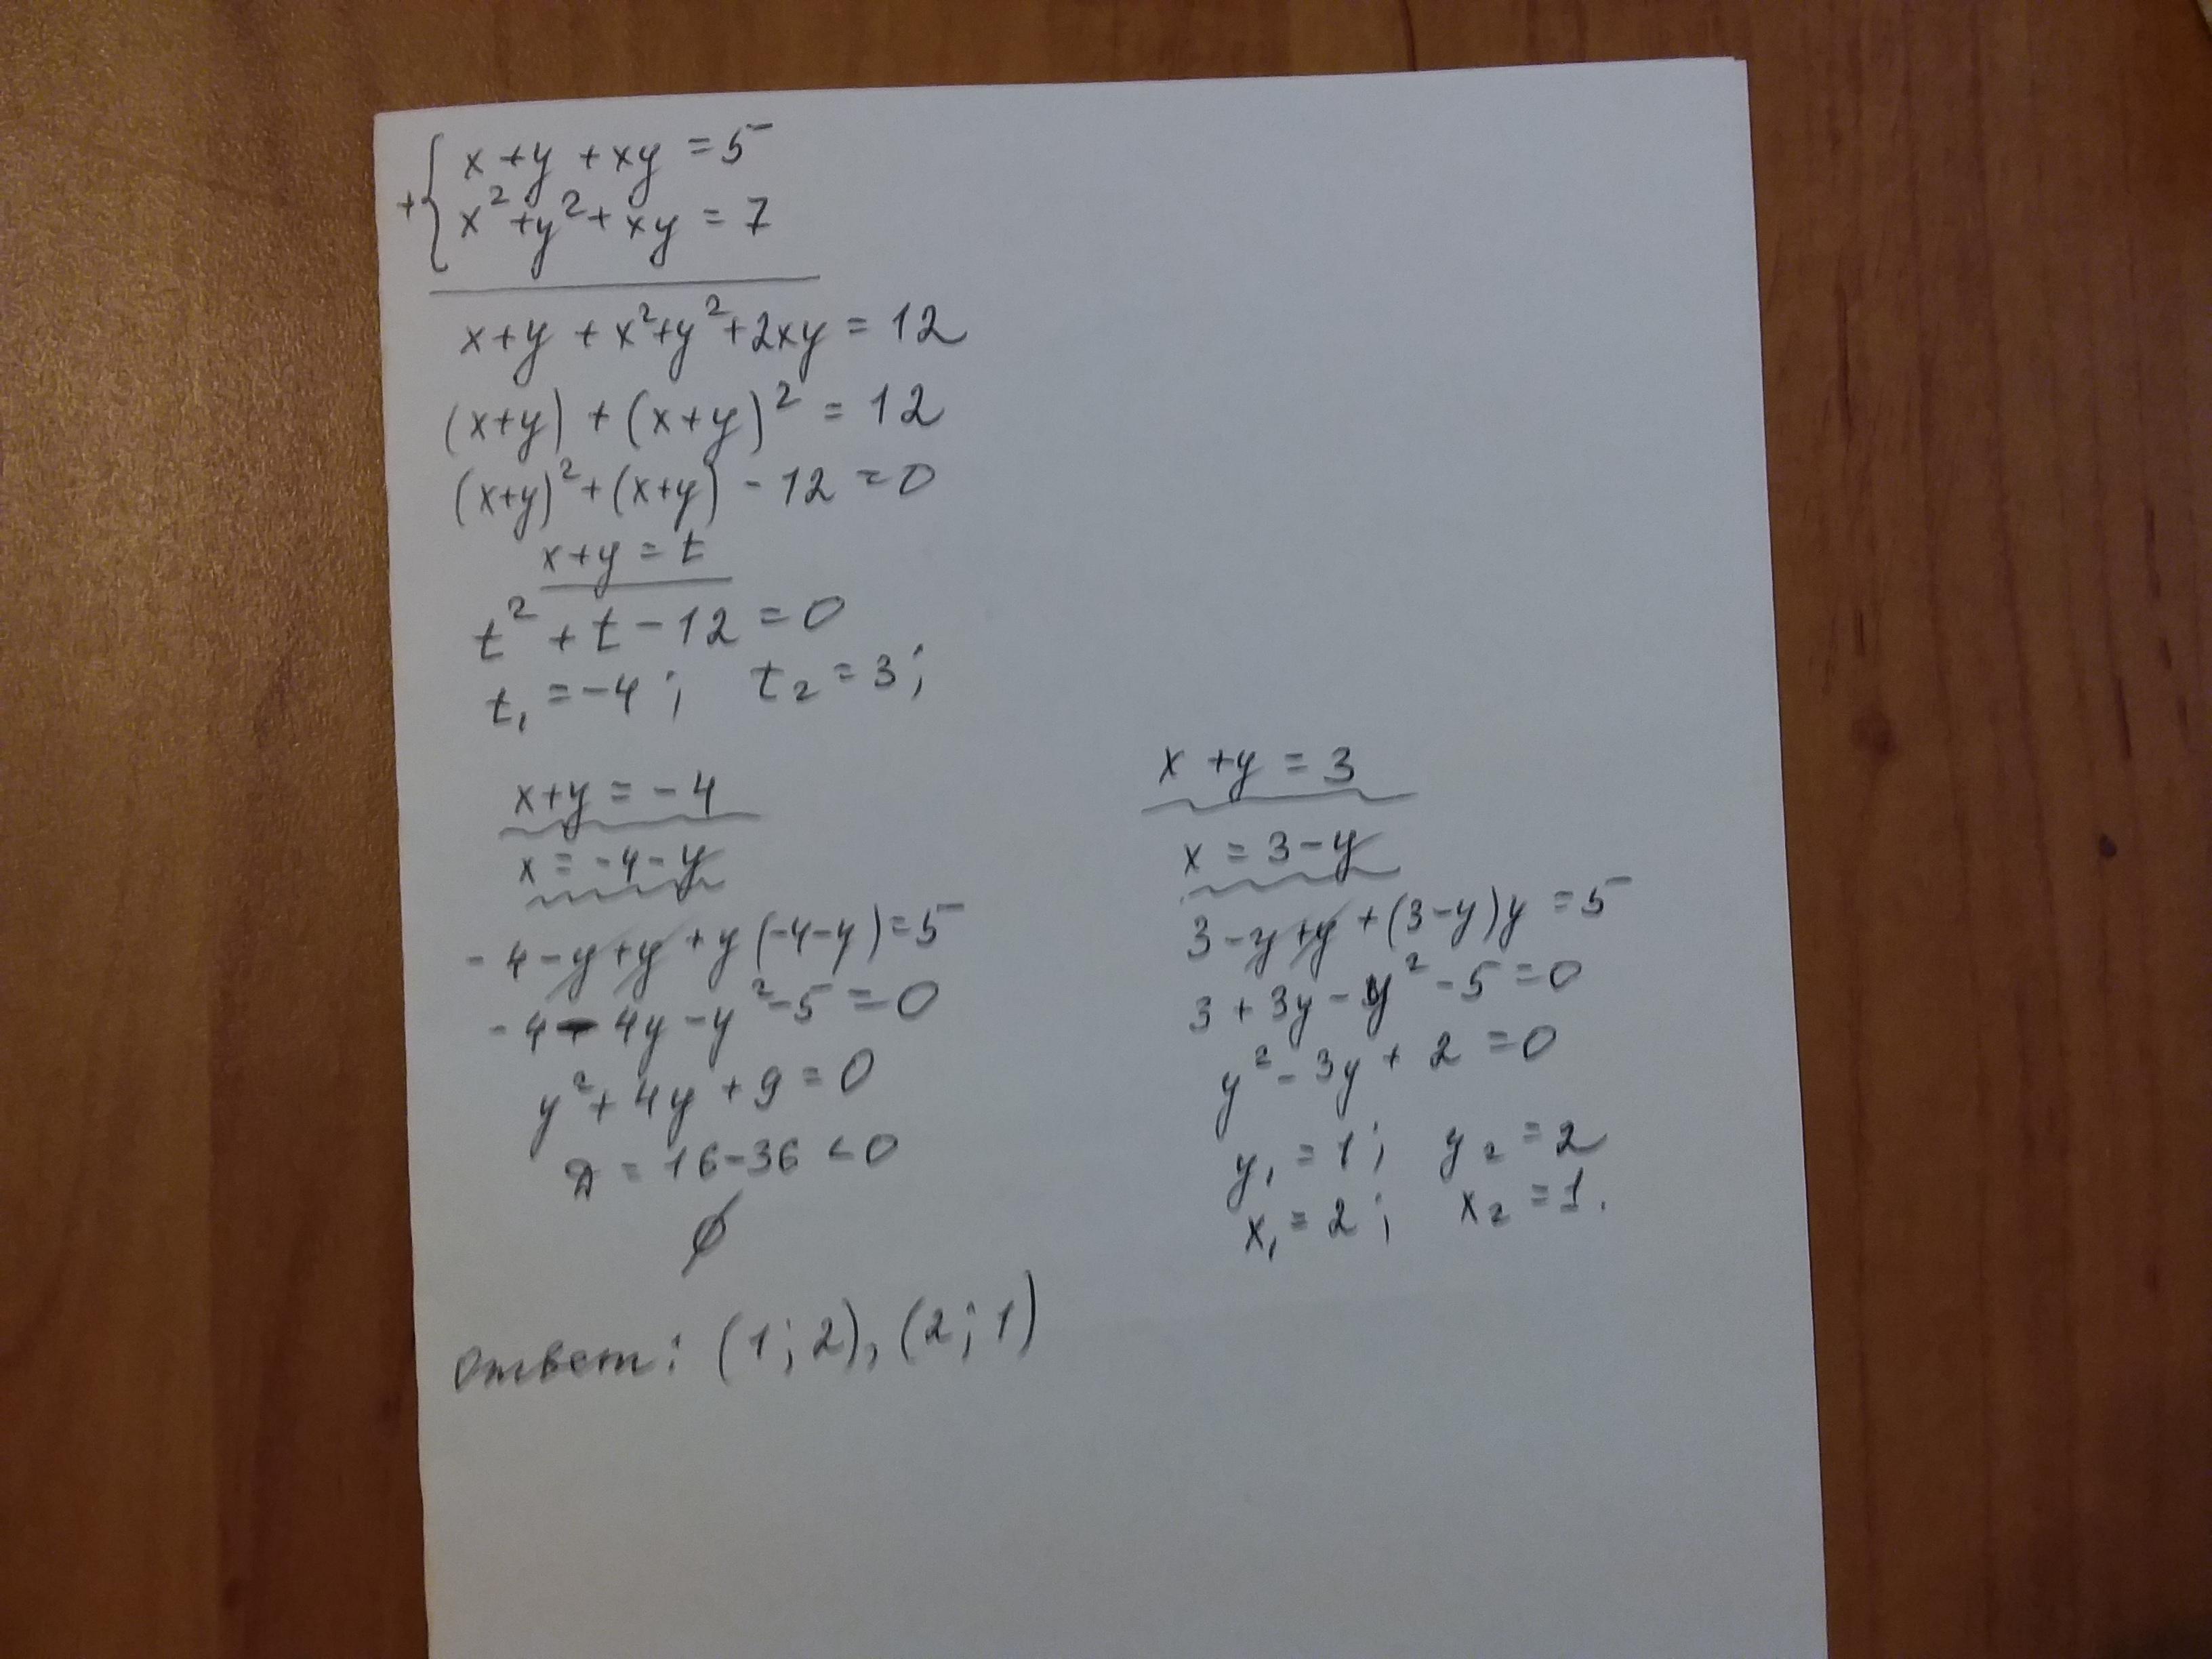 +{ x + y + xy = 5
x² + y² + xy = 7
x+y + x²+y²+2xy = 12
(x+y) + (x+y)² = 12
(x+y)² + (x+y) - 12 = 0
x+y = t
t² + t - 12 = 0
t₁ = -4 ; t₂ = 3 ;
x+y = -4
x = -4-y
-4-y+y+y(-4-y)=5
-4-4y-y²-5=0
y²+4y+9=0
D = 16-36 < 0
∅
x+y = 3
x = 3-y
3-y+y+(3-y)y=5
3+3y-y²-5=0
y²-3y+2=0
y₁ = 1 ; y₂ = 2
x₁ = 2 ; x₂ = 1.
Ответ: (1; 2), (2; 1)